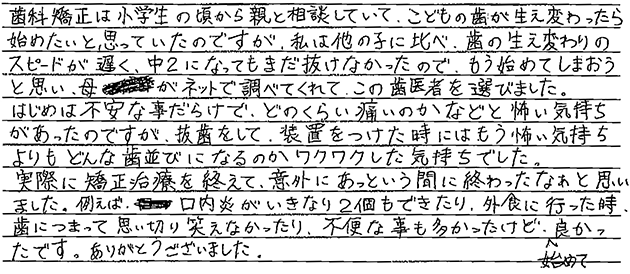 歯科矯正は小学生の頃から親と相談していて、こどもの歯が生え変わったら
始めたいと思っていたのですが、私は他の子に比べ、歯の生え変わりの
スピードが遅く、中2になってもまだ抜けなかったので、もう始めてしまおう
と思い、母がネットで調べてくれて、この歯医者を選びました。
はじめは不安な事だらけで、どのくらい痛いのかなどと怖い気持ち
があったのですが、抜歯をして、装置をつけた時にはもう怖い気持ち
よりもどんな歯並びになるのかワクワクした気持ちでした。
実際に矯正治療を終えて、意外にあっという間に終わったなぁと思い
ました。例えば、口内炎がいきなり2個もできたり、外食に行った時、
歯につまって思い切り笑えなかったり、不便な事も多かったけど、良かっ
たです。ありがとうございました。
始めて